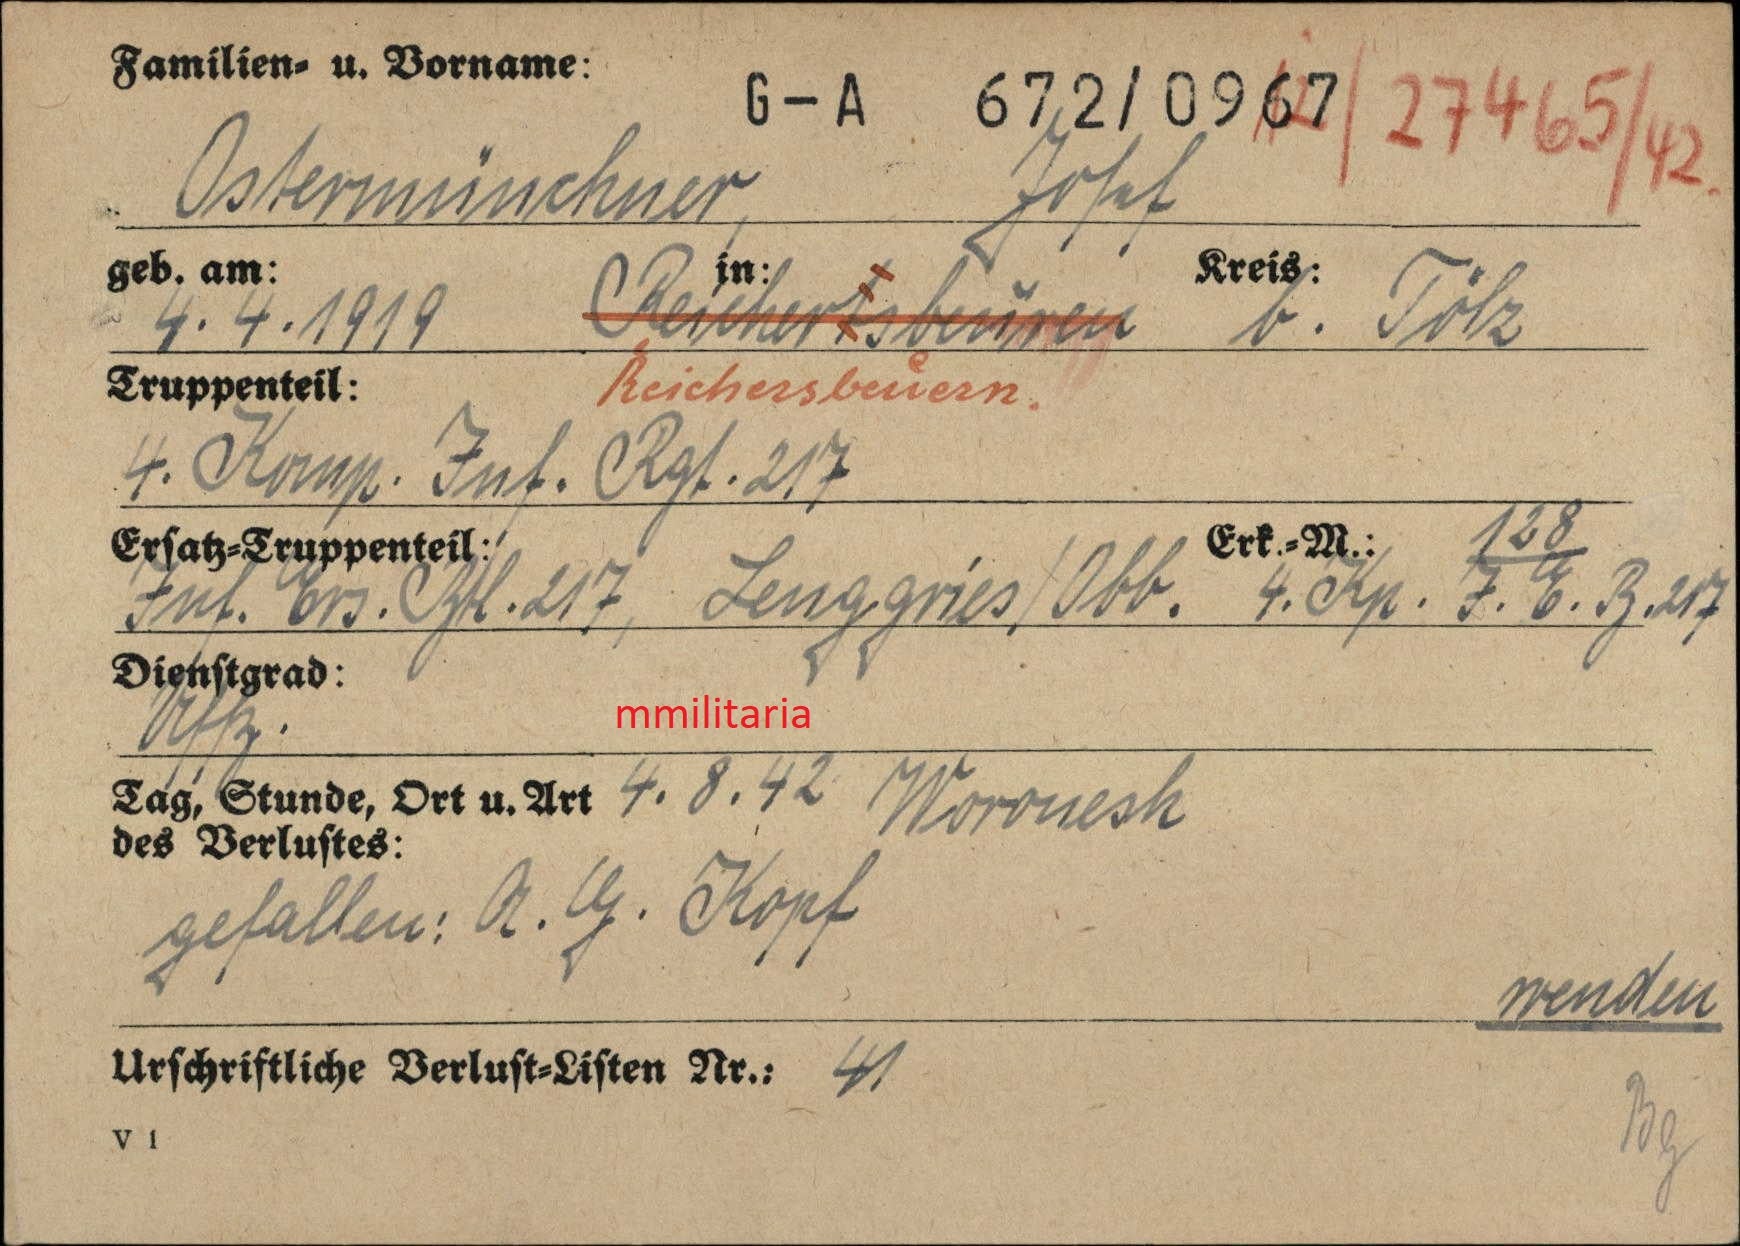 Familien- u. Vorname:
G-A 672/0967
12/27465/42.
Ostermünchner, Josef
geb. am: in: Kreis:
4.4.1919 Reichertsbeuren b. Tölz
Reichersbeuern.
Truppenteil:
4. Komp. Inf. Rgt. 217
Ersatz-Truppenteil: Erk.-M.: 128
Inf. Ers. Btl. 217, Lenggries/Obb. 4. Kp. I. E. B. 217
Dienstgrad:
Uffz.
mmilitaria
Tag, Stunde, Ort u. Art 4.8.42 Woronesh
des Verlustes:
gefallen: A. G. Kopf
wenden
Urschriftliche Verlust-Listen Nr.: 41
V 1